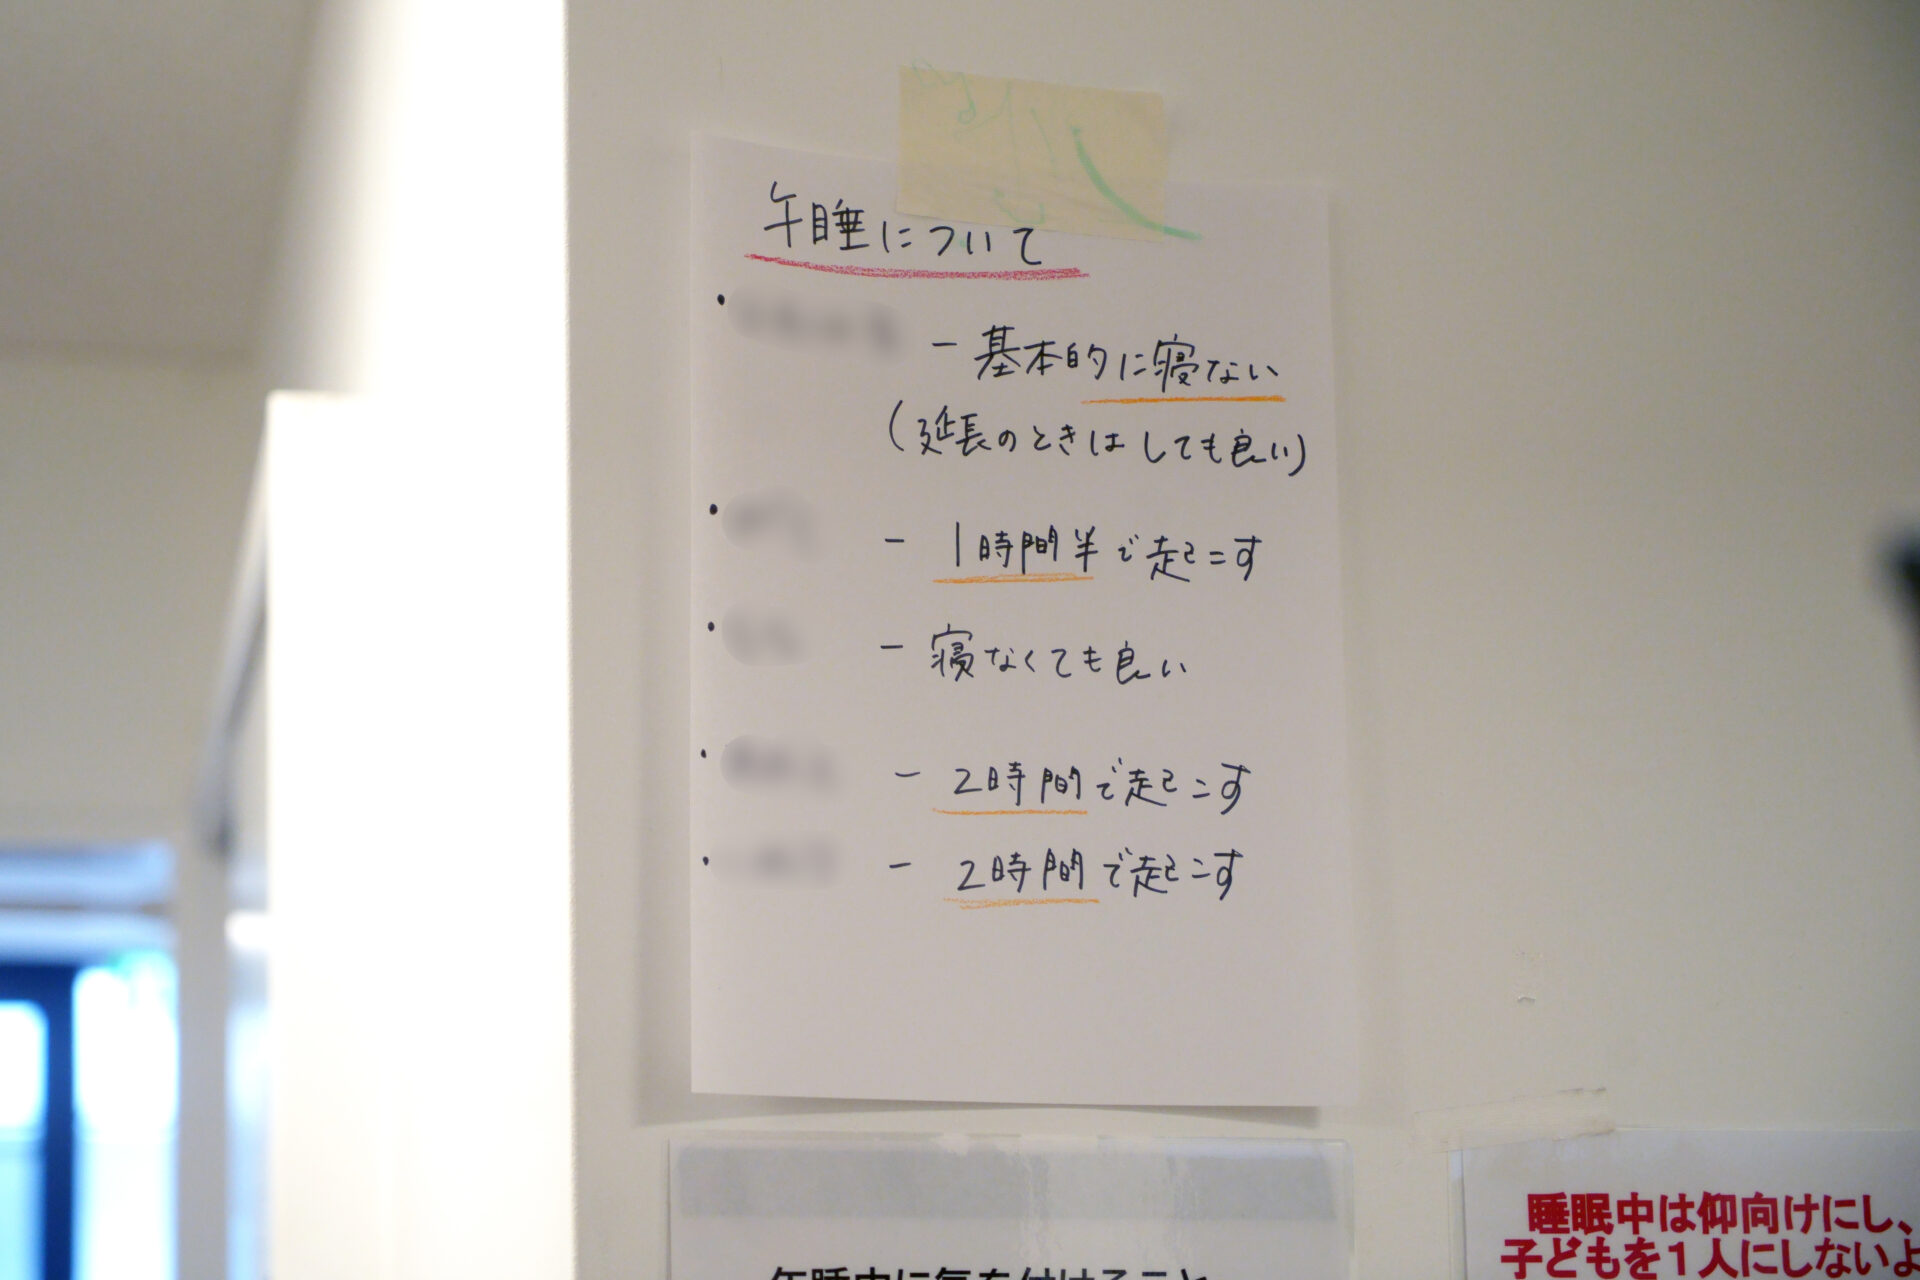 午睡について
・ － 基本的に寝ない
(延長のときはしても良い)
・ － 1時間半で起こす
・ － 寝なくても良い
・ － 2時間で起こす
・ － 2時間で起こす
午睡中に気を付けること
睡眠中は仰向けにし、
子どもを1人にしないよ